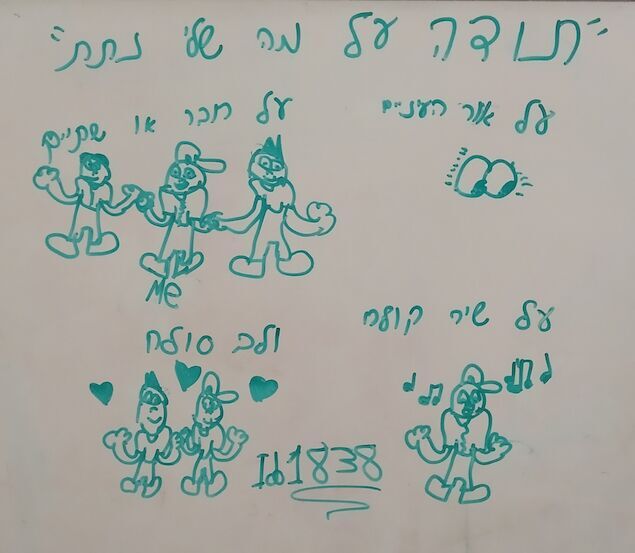 "תודה על מה שלי נתת"
על אור העיניים
על חבר או שתיים
Me
על שיר קולח
ולב סולח
Id1838